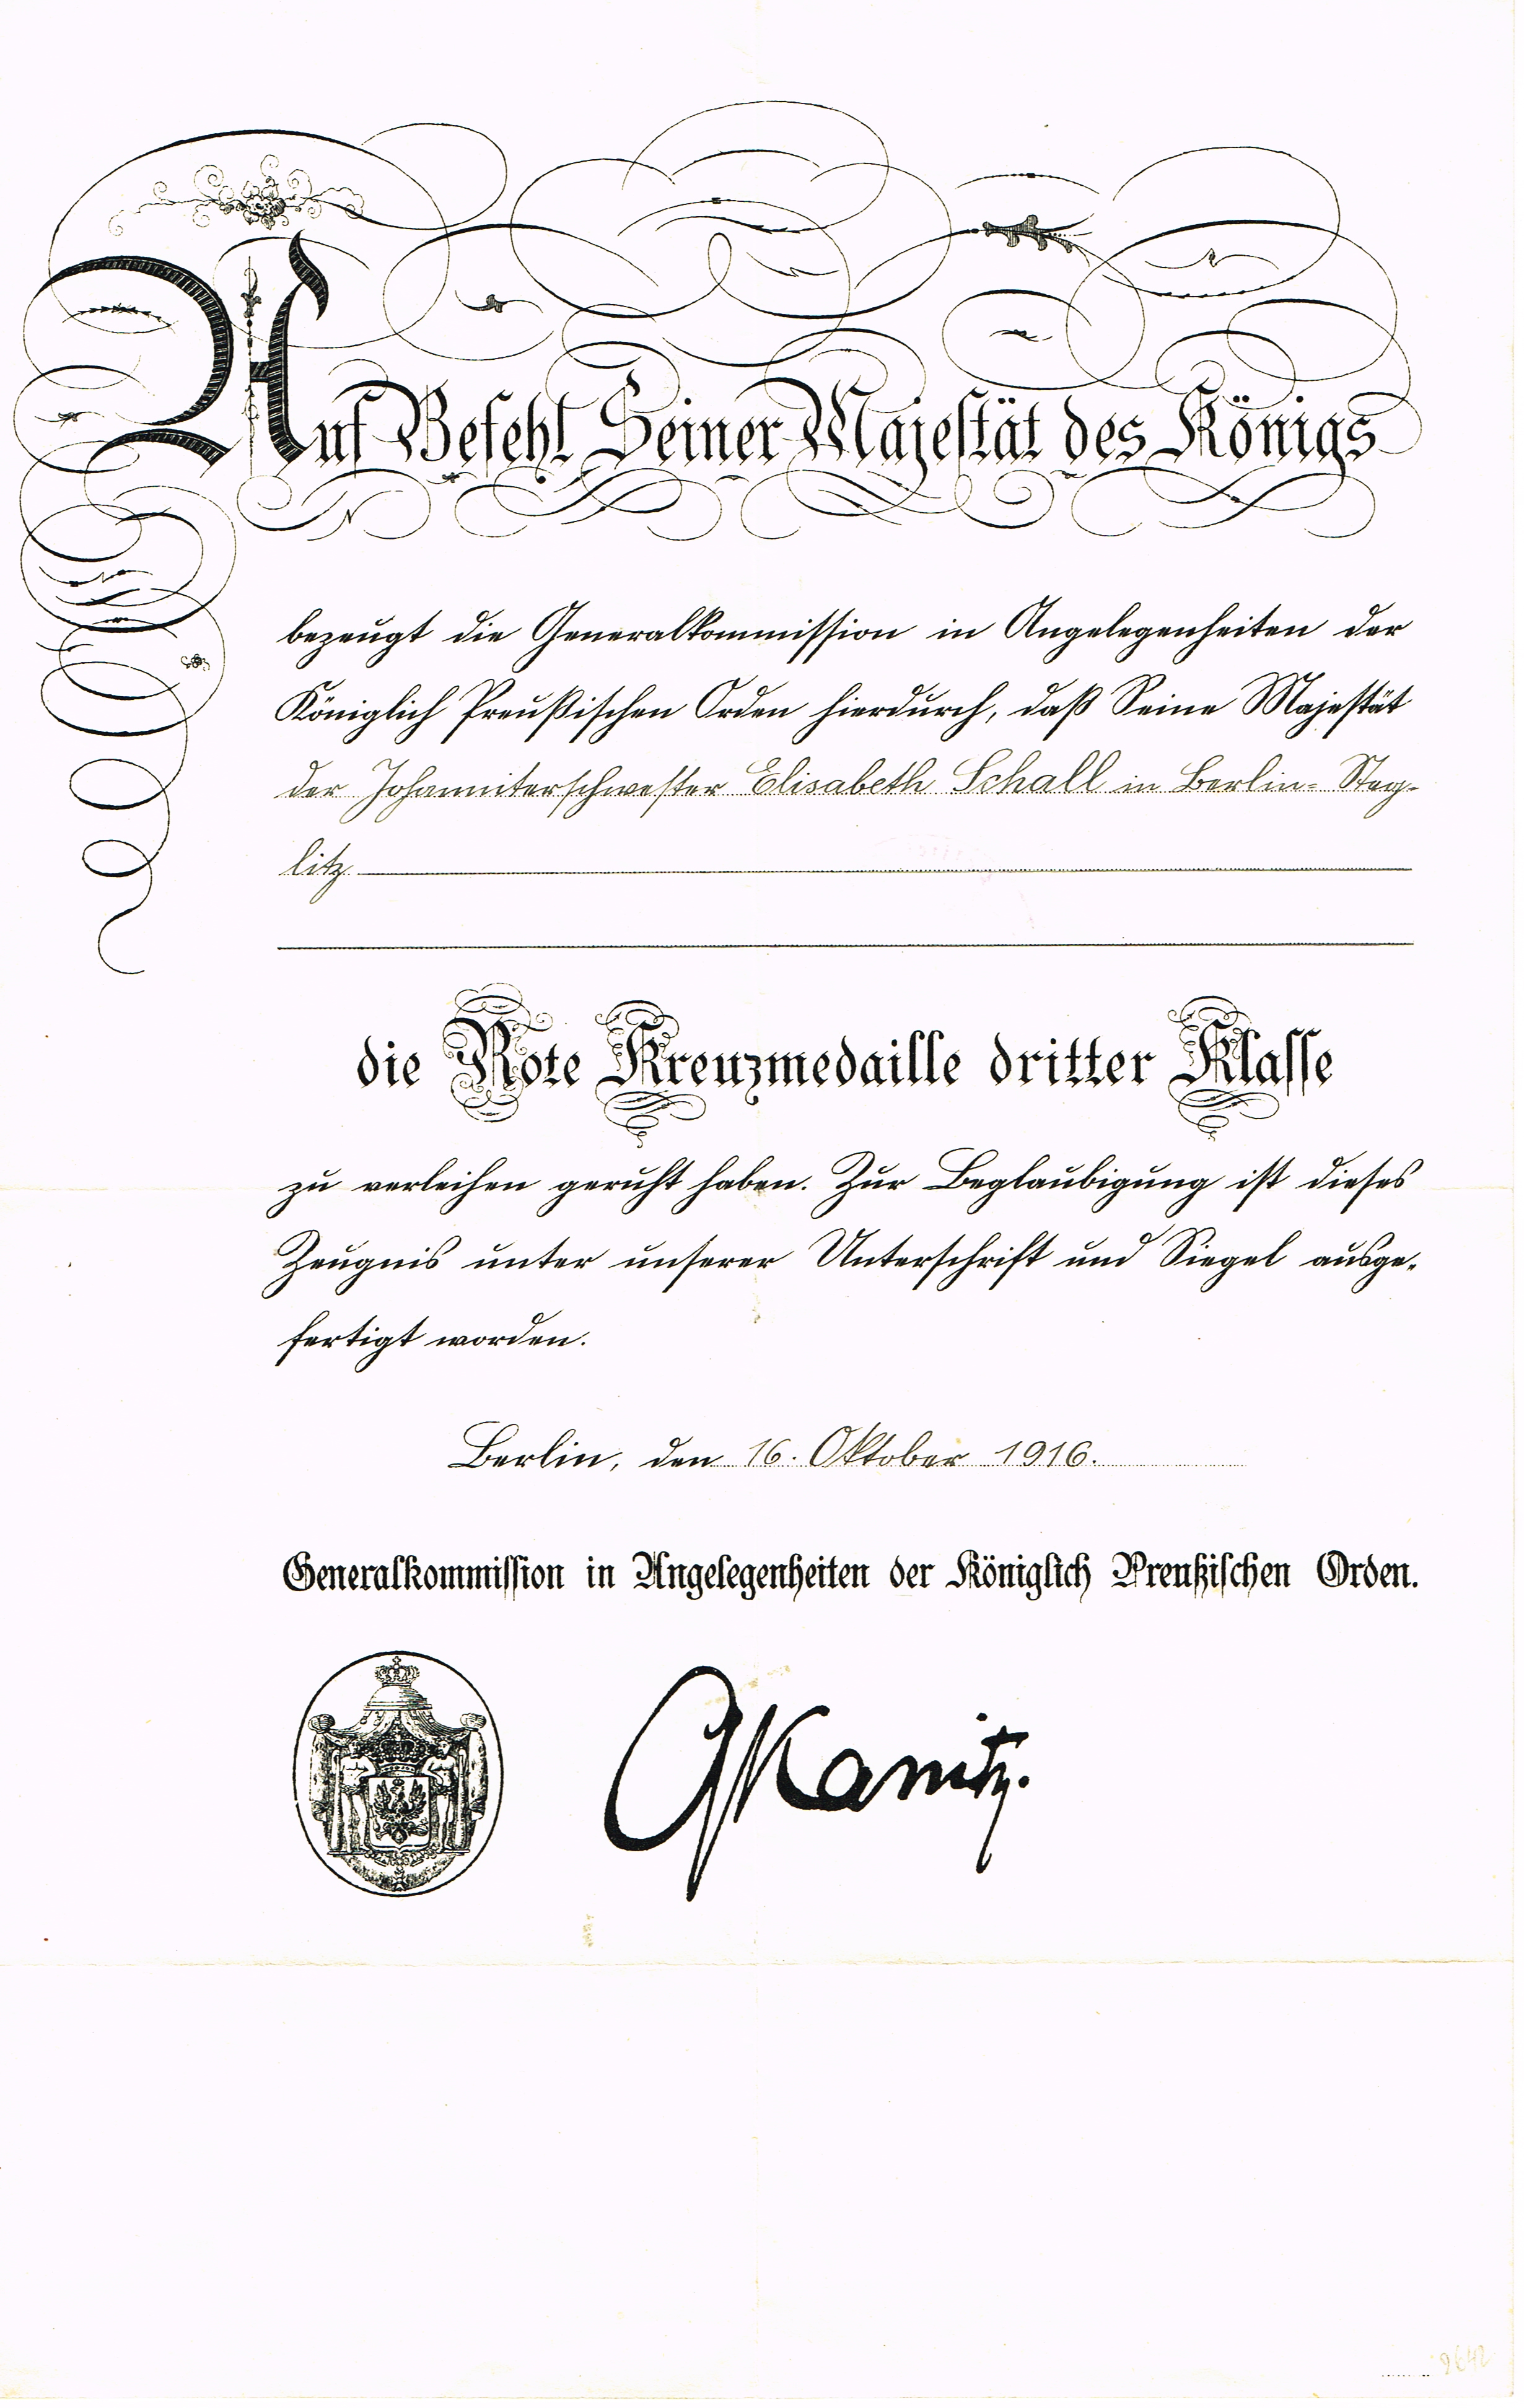 Auf Befehl Seiner Majestät des Königs
bezeugt die Generalkommission in Angelegenheiten der
Königlich Preußischen Orden hierdurch, daß Seine Majestät
der Johanniterschwester Elisabeth Schall in Berlin-Steg-
litz
die Rote Kreuzmedaille dritter Klasse
zu verleihen geruht haben. Zur Beglaubigung ist dieses
Zeugnis unter unserer Unterschrift und Siegel ausge-
fertigt worden.
Berlin, den 16. Oktober 1916.
Generalkommission in Angelegenheiten der Königlich Preußischen Orden.
Kanitz.